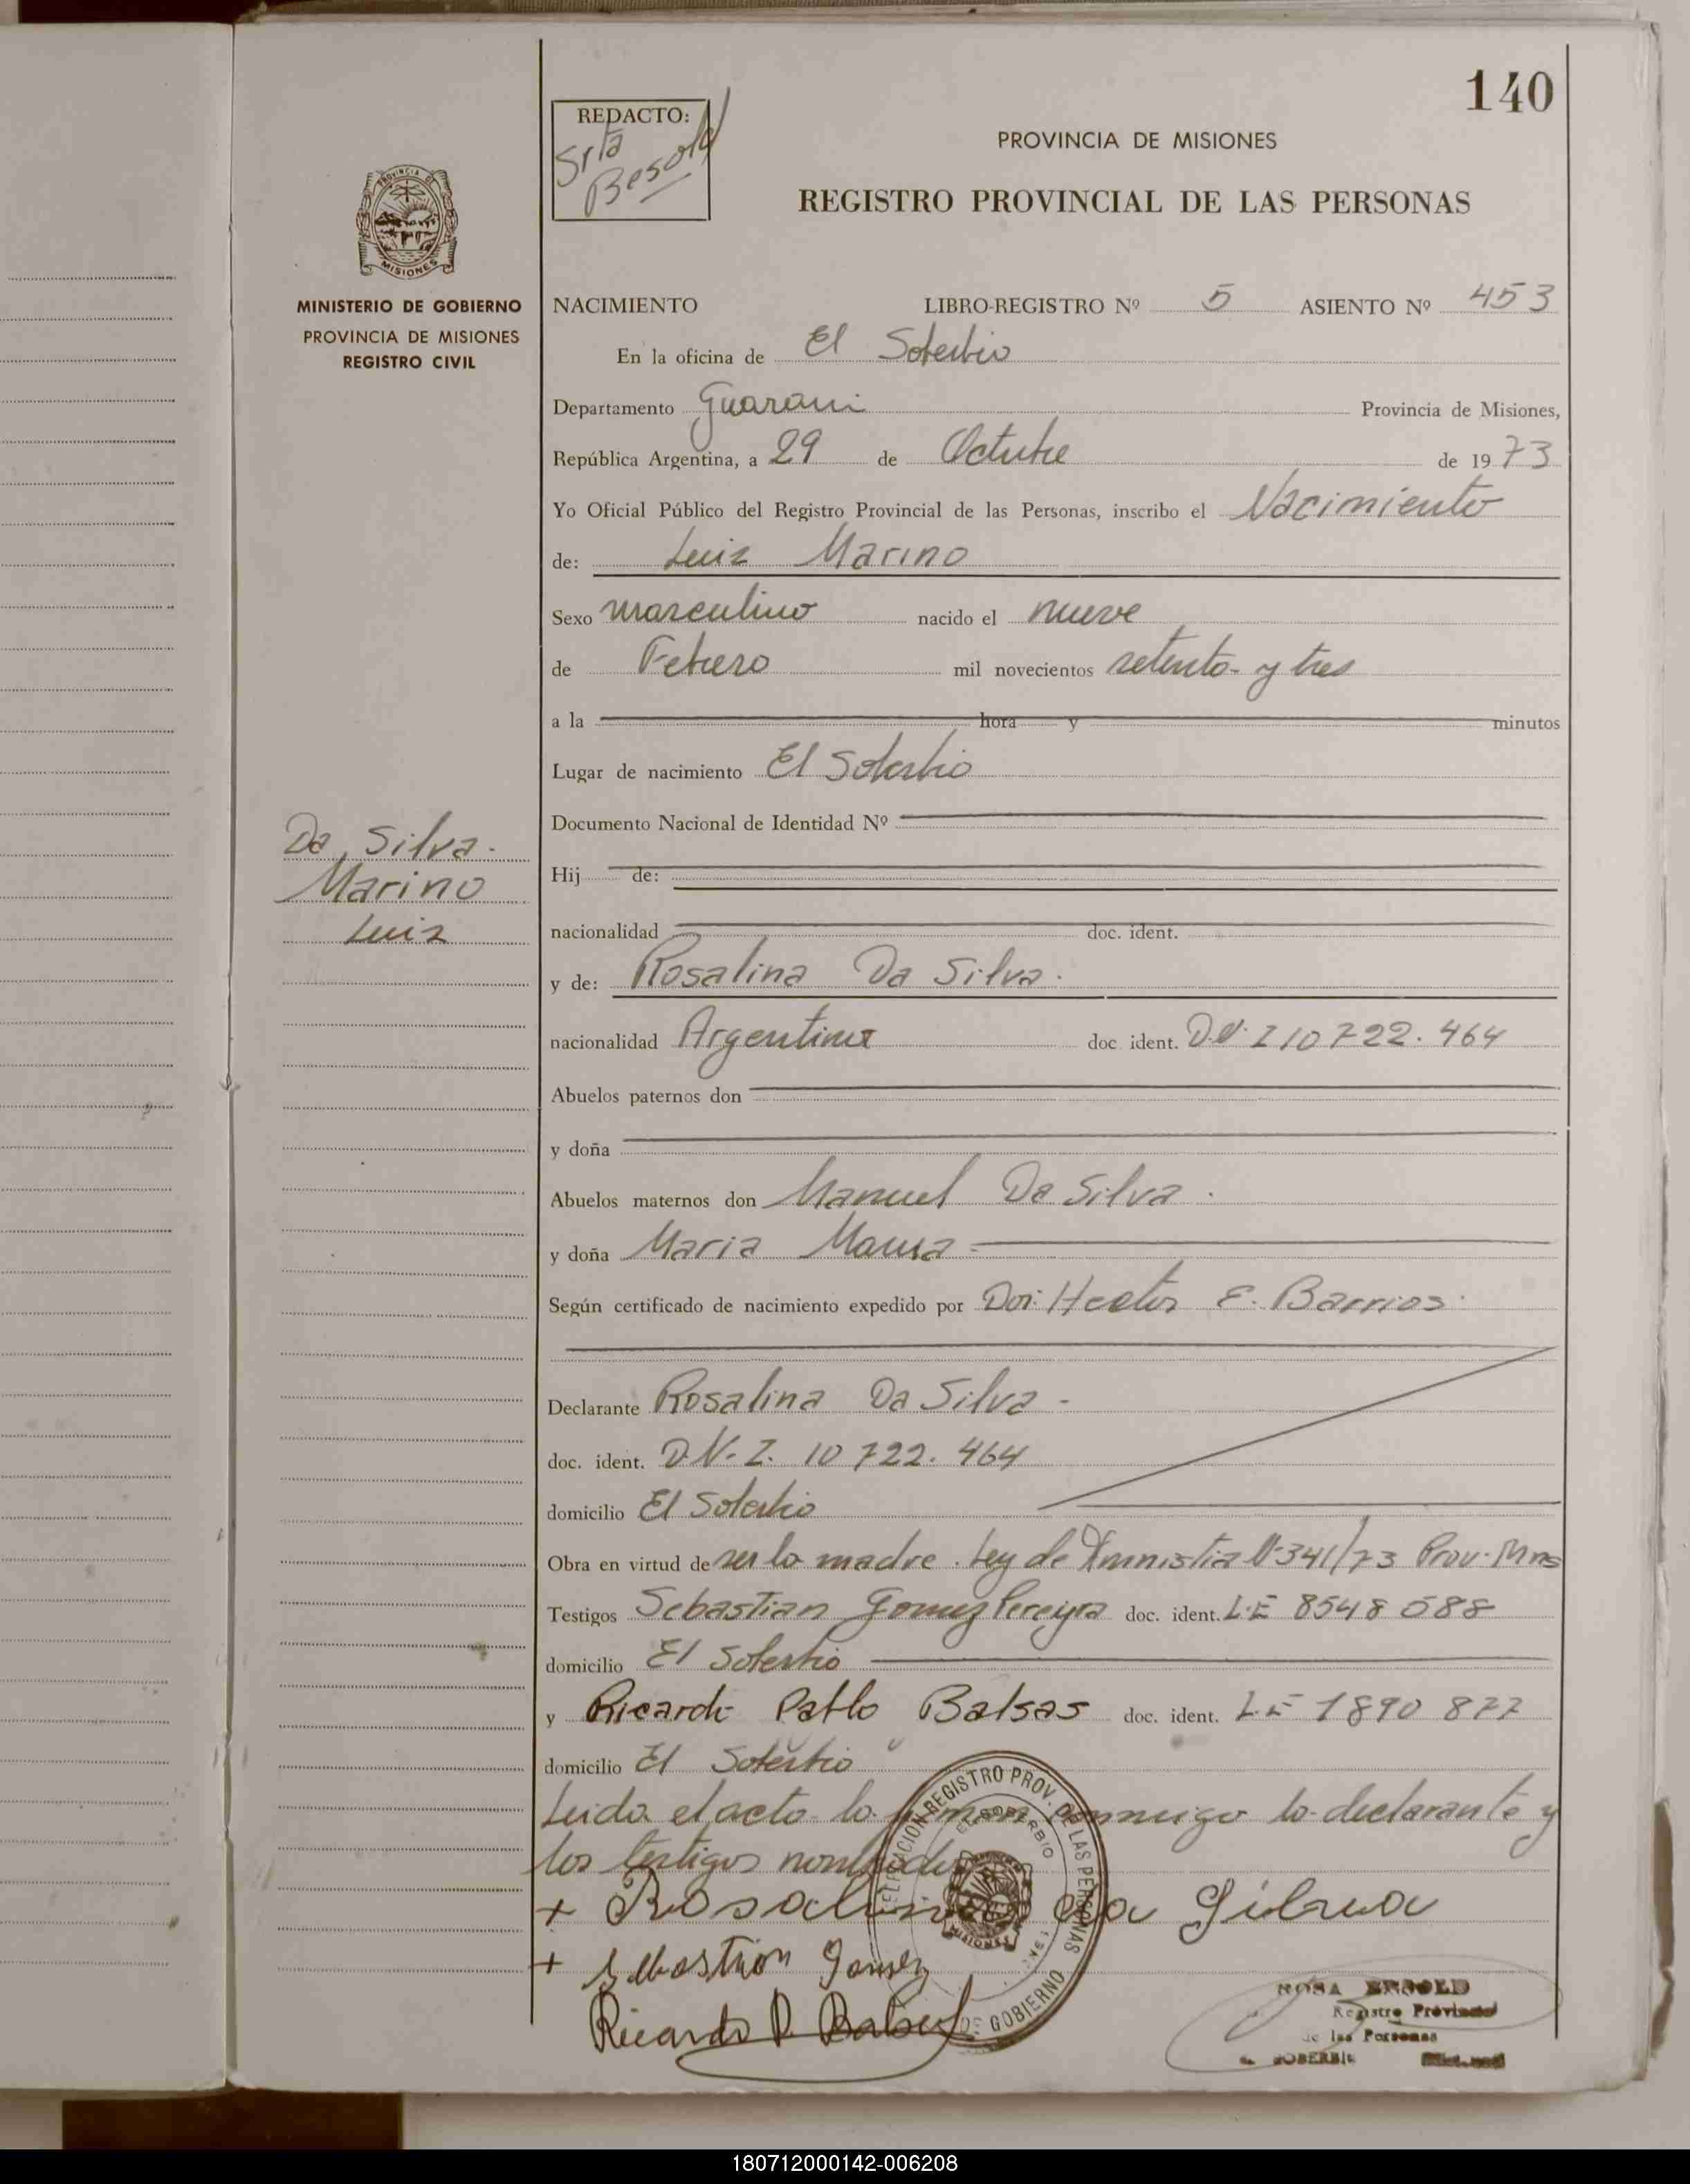 140
REDACTO:
Srta
Besold
PROVINCIA DE MISIONES
REGISTRO PROVINCIAL DE LAS PERSONAS
PROVINCIA DE
MISIONES
MINISTERIO DE GOBIERNO
PROVINCIA DE MISIONES
REGISTRO CIVIL
NACIMIENTO LIBRO-REGISTRO Nº 5 ASIENTO Nº 453
En la oficina de El Soberbio
Departamento Guarani Provincia de Misiones,
República Argentina, a 29 de Octubre de 1973
Yo Oficial Público del Registro Provincial de las Personas, inscribo el Nacimiento
de: Luiz Marino
Sexo masculino nacido el nueve
de Febrero mil novecientos setenta y tres
a la hora y minutos
Lugar de nacimiento El Soberbio
Documento Nacional de Identidad Nº
Da Silva.
Marino
Luiz
Hij de:
nacionalidad doc. ident.
y de: Rosalina Da Silva.
nacionalidad Argentina doc. ident. D.N.I 10722.464
Abuelos paternos don
y doña
Abuelos maternos don Manuel Da Silva.
y doña Maria
Según certificado de nacimiento expedido por Dor: Hector E. Barrios.
Declarante Rosalina Da Silva -
doc. ident. D.N.I. 10 722. 464
domicilio El Soberbio
Obra en virtud de ser la madre. Ley de Amnistia Nº 341/73 Prov. Mnes
Testigos Sebastian Gomez Pereyra doc. ident. L.E 8548 588
domicilio El Soberbio
y Ricardo Pablo Balsas doc. ident. L.E 1890 877
domicilio El Soberbio
Leida el acta la firman conmigo la declarante y
los testigos nombrados
+ Rosalina da Silva
+ Sebastion Gomez
Ricardo P. Balsas
DELEGACION REGISTRO PROV. DE LAS PERSONAS
EL SOBERBIO
MISIONES
DE GOBIERNO
ROSA BESOLD
Registro Provincial
de las Personas
SOBERBIO
180712000142-006208